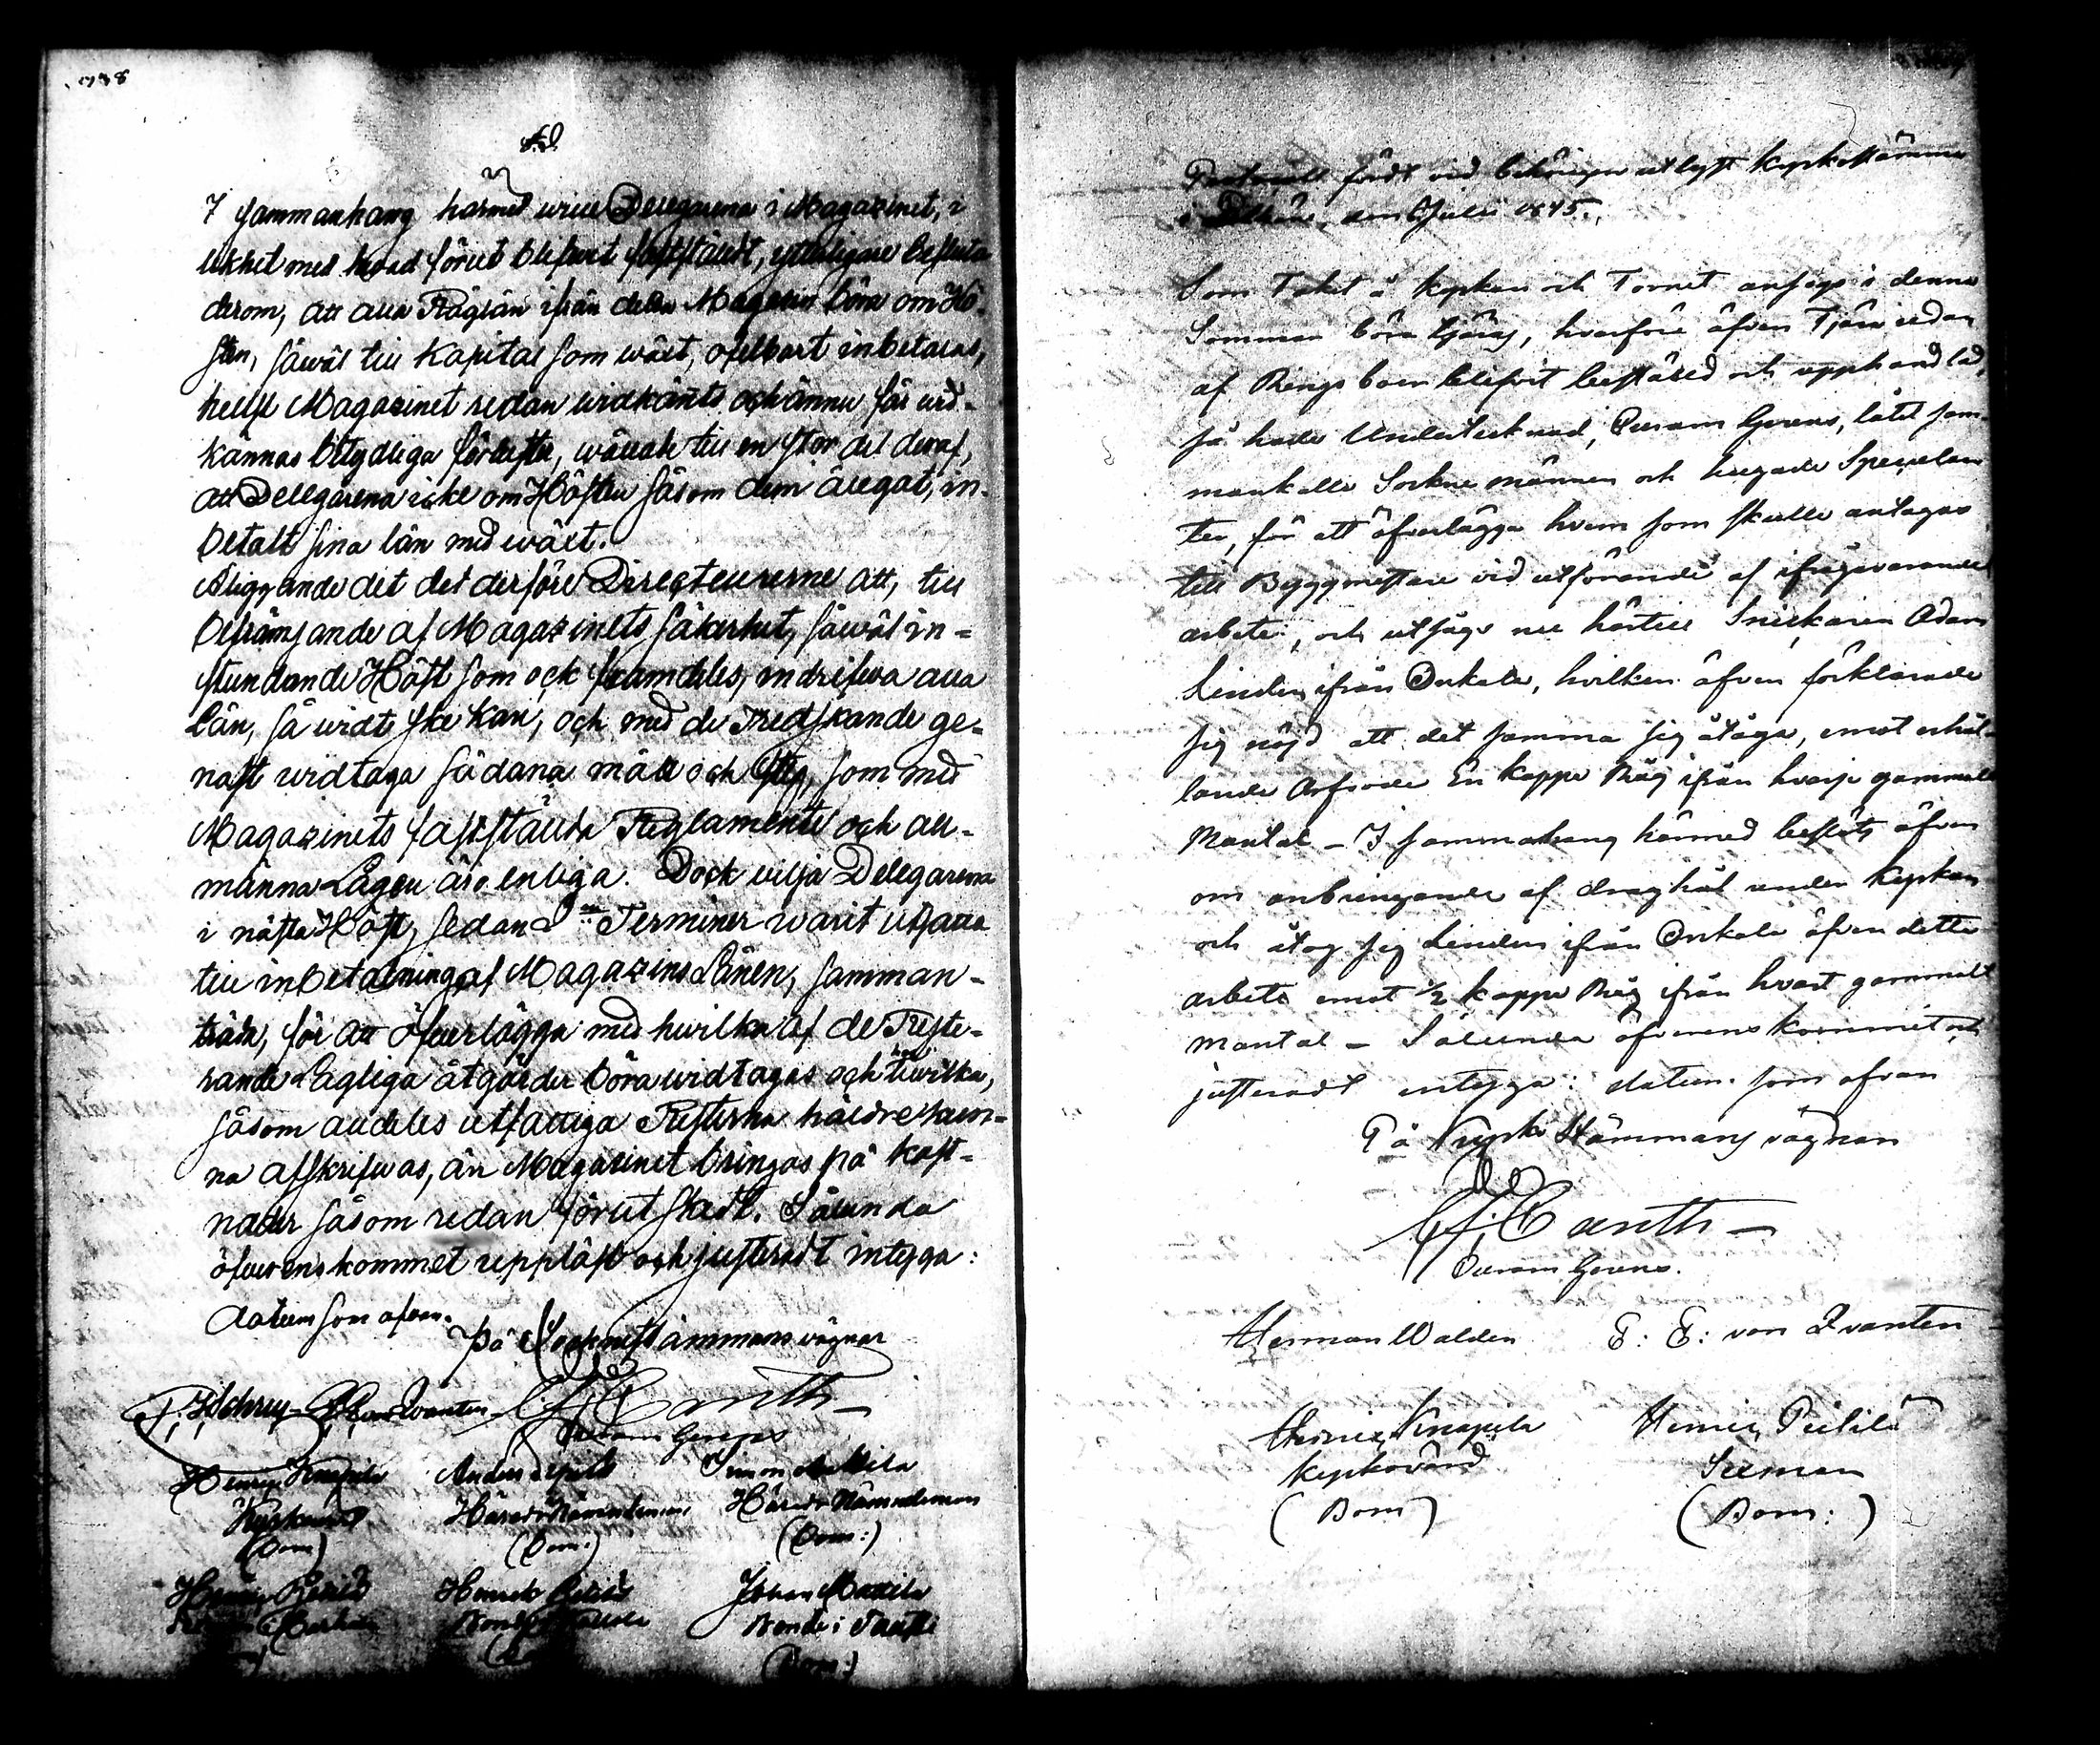 §.2.
I sammanhang härmed wille Delegarena i Magazinet, i
likhet med hvad förut blifwit fastställdt, ytterligare besluta
derom, att alla Råglån ifrån detta Magazin böra om Hö-
sten, såwäl till Kapital som wäxt, ofelbart inbetalas,
helst Magazinet redan widkänts och ännu får wid-
kännas betydliga förluster, wållade till en stor del deraf,
att Delegarena icke om Hösten såsom dem ålegat, in-
betalt sina lån med wäxt.
Åliggande det det derföre Directeurerne att, till
befrämjande af Magazinets säkerhet, såwäl in-
stundande Höst som ock framdeles, indrifwa alla
Lån, så widt ske kan, och med de Tredskande ge-
nast widtaga sådana mått och steg, som med
Magazinets fastställda Reglamente och all-
männa Lagen äro enliga. Dock vilja Delegarena
i nästa Höst, sedan 2ne Terminer warit utsatta
till inbetalning af Magazins Lånen, samman-
träda, för att öfwerlägga med hwilka af de Reste-
rande Lagliga åtgärder böra widtagas och hwilka,
såsom alldeles utfattiga Resterna häldre kun-
na afskrifwas, än Magazinet bringas på kost-
nader såsom redan förut skedt. Sålunda
öfwerenskommet uppläst och justeradt intyga:
datum som ofvan.
På Sockne stämmans vägnar
C. J. Canth
Henric Knapila Anders Simon Mattila
Kyrkvärd Härads Nämndeman Härads Nämndeman
(Bom) (Bom:) (Bom:)
Henric Henrik Johan Mattila
Bonde Bonde i
(Bom:)
Protocoll fördt vid behörigen utlyst Kyrkostämma
i den Juli 1845.
Som Taket å Kyrkan och Tornet ansågs i denna
Sommar böra tjäras, hvarföre äfven Tjära redan
af Rengsboer blifvit bestäld och upphandlad,
så hade Undertecknad, Curam Gerens, låtit sam-
mankalla Sockne männen och herrgads Speculan
ter, för att öfverlägga hvem som skulle antagas
till Byggmästare vid utförandet af ifrågavarande
arbete, och utsågs nu härtill Snickaren Adam
Linden ifrån Onkala, hvilken äfven förklarade
sig nöjd att det samma sig åtaga, emot erhål-
lande Arfvode En kappe Råg ifrån hvarje gammalt
Mantal – I sammanhang härmed beslöts äfven
om anbringande af draghål under Kyrkan
och åtog sig Linden ifrån Onkala äfven detta
arbete emot 1/2 kappe Råg ifrån hvart gammalt
mantal – Sålunda öfverenskommit och
justeradt intyga: datum som ofvan
På Kyrko Stämmans vägnar
C. J. Canth
Curam Gerens.
Herman Walden E: E: von Qvanten
Henric Knapila Henric Peltilä
Kyrkovärd Sexman
(Bom) (Bom:)